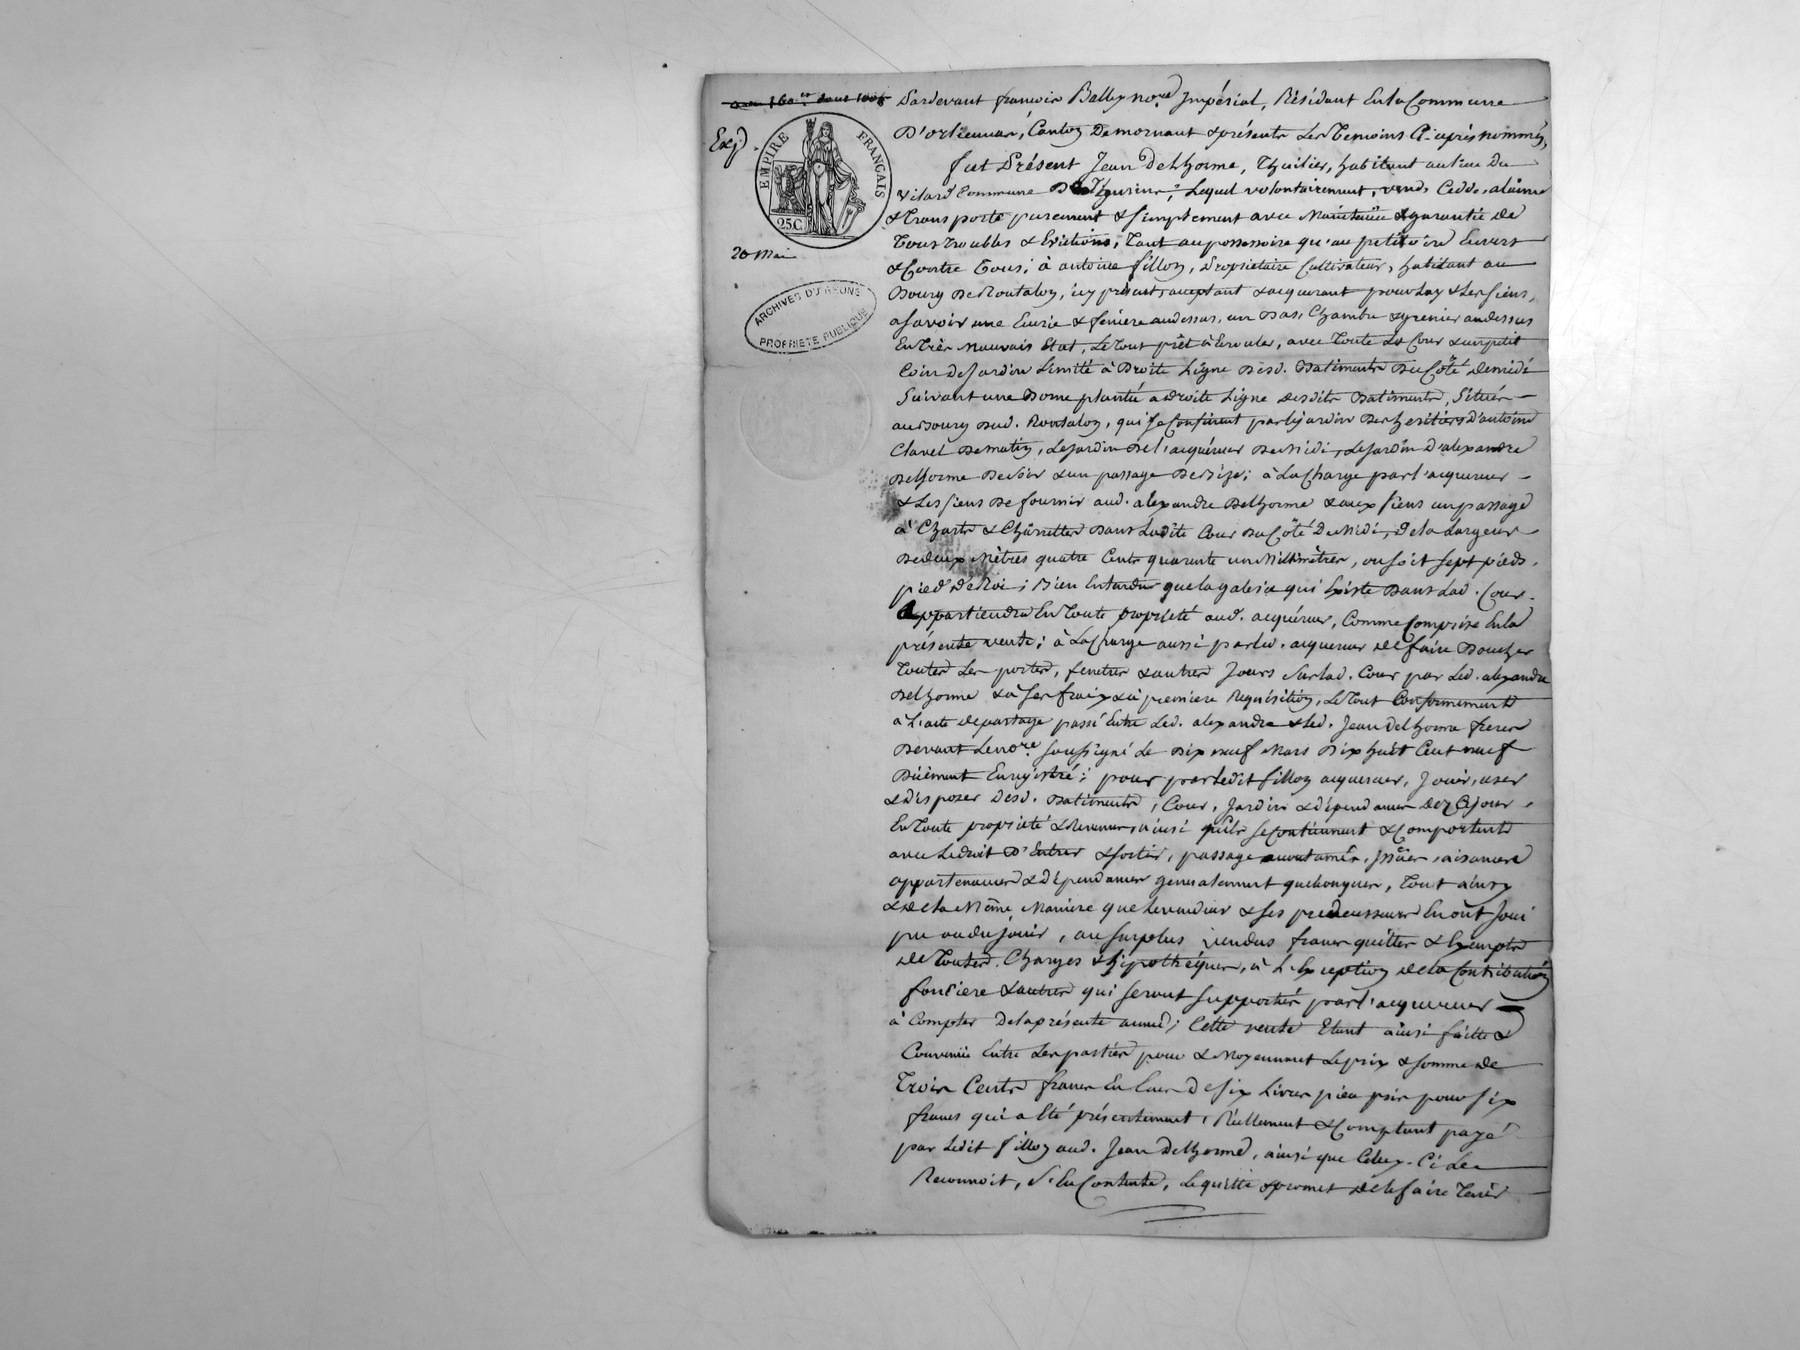 Exp.
EMPIRE FRANÇAIS
25C.
20 Mai
ARCHIVES DU RHONE
PROPRIETE PUBLIQUE
Pardevant françois Balley no.re Impérial, Résidant En la Commune
D'orliennas, Canton De mornant & présents Les Temoins Ci-après nommés,
fut Présent Jean Delhorme, Thuilier, habitant au lieu Du
Vilard Commune De Thurins; Lequel volontairement, vend, Cedde,
& Transporte purement & simplement avec Maintenüe & garantie de
Tous troubles & Evictions, Tant au possessoire qu'au petitoire Envers
& Contre Tous; à antoine fillon, Propriétaire Cultivateur, habitant au
Bourg De Rontalon, icy présent, acceptant & acquerant pour Luy & Les siens,
asavoir une Ecurie & feniere audessus, un Bas, Chambre & grenier audessus
En Très Mauvais Etat, Le Tout prêt à Ecrouler, avec Toute La Cour & un petit
Coin De Jardin Limitté à Droite Ligne Desd. Batiments Du Côté De midi
Suivant une Borne plantée a droite Ligne desdits Batiments, Situés
au Bourg Dud. Rontalon, qui se Confinent par le jardin Des heritiers d'antoine
Clavel De matin, Le Jardin De l'acquéreur De Midi, Le Jardin d'alexandre
Delhorme De soir & un passage De Bize; à La Charge par l'acquereur
& Les siens De fournir aud. alexandre Delhorme & aux siens un passage
à Chars & Charrettes Dans Ladite Cour Du Côté De Midi, De la Largeur
De deux Mètres quatre Cents quarante un Millimètres, ou soit sept pieds,
pied De Roi; Bien Entendu que la galerie qui Existe Dans Lad. Cour
appartiendra En Toute propriété aud. acquéreur, Comme Comprise En la
présente vente; à La Charge aussi par led. acquereur de faire Boucher
Toutes Les portes, fenetres & autres Jours Sur lad. Cour par Led. alexandre
Delhorme & à ses fraix & à premiere Requisition, Le Tout Conformément
à l'acte de partage passé Entre Led. alexandre & Led. Jean Delhorme freres
Devant Le no.re Soussigné Le Dix neuf Mars Dix huit Cent neuf
Dûement Enregistré; pour par Ledit fillon acquereur, Jouir, user
& disposer Desd. Batiments, Cour, Jardin & dépendances Dez Cejour
En Toute propriété & Revenus, ainsi qu'ils se Contiennent & Comportent
avec Le droit D'Entrer & sortir, passage accoutumés, aisances
appartenances & dépendances generalement quelconques, Tout ainsy
& De la Même Maniere que Le vendeur & ses predecesseurs En ont Joui
pu ou du jouir, au surplus vendus francs quittes & Exempts
de Toutes Charges & hipothéques, à L'Exception de la Contribution
fonciere & autres qui seront supportés par l'acquereur
à Compter De la présente année; Cette vente Etant ainsi faitte &
Convenüe Entre Les parties pour & Moyennant Le prix & somme de
Trois Cents francs En Ecus de six Livres pieu pris pour six
francs qui a Eté présentement, Réellement & Comptant payé
par Ledit fillon aud. Jean Delhorme, ainsi que Celuy-Ci Le
Reconnoit, S'En Contente, Le quitte & promet De le faire Tenir